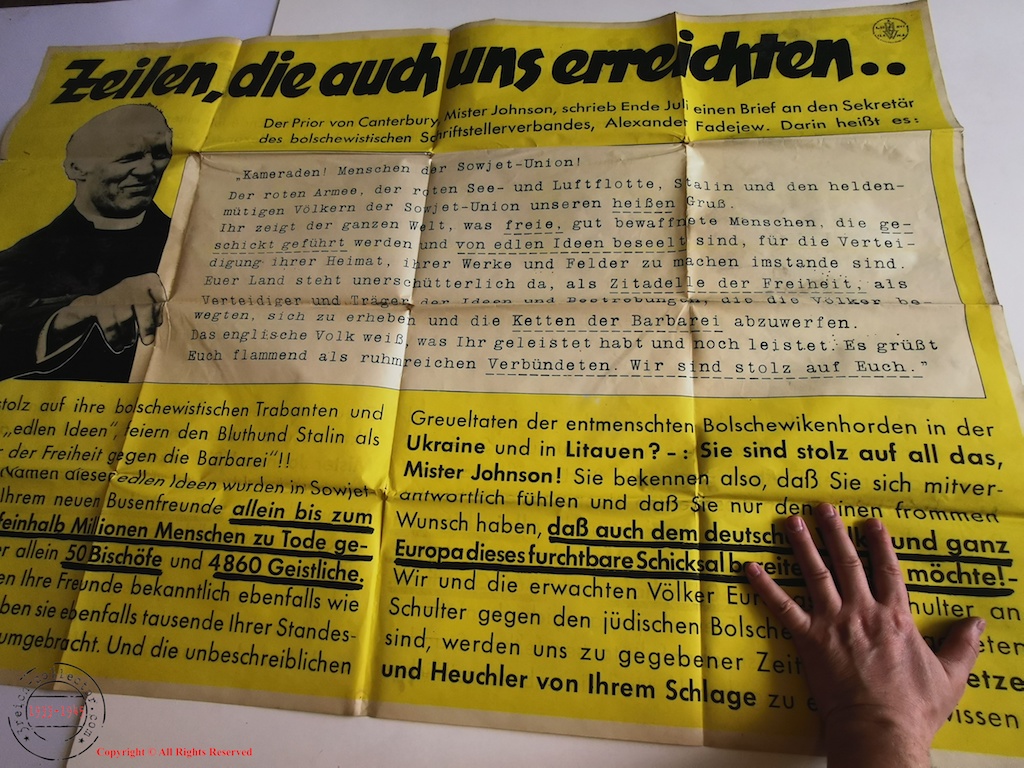 Zeilen, die auch uns erreichten..
Der Prior von Canterbury, Mister Johnson, schrieb Ende Juli einen Brief an den Sekretär
des bolschewistischen Schriftstellerverbandes, Alexander Fadejew. Darin heißt es:
„Kameraden! Menschen der Sowjet-Union!
Der roten Armee, der roten See- und Luftflotte, Stalin und den helden-
mütigen Völkern der Sowjet-Union unseren heißen Gruß.
Ihr zeigt der ganzen Welt, was freie, gut bewaffnete Menschen, die ge-
schickt geführt werden und von edlen Ideen beseelt sind, für die Vertei-
digung ihrer Heimat, ihrer Werke und Felder zu machen imstande sind.
Euer Land steht unerschütterlich da, als Zitadelle der Freiheit, als
Verteidiger und Träger der Ideen und Bestrebungen, die die Völker be-
wegten, sich zu erheben und die Ketten der Barbarei abzuwerfen.
Das englische Volk weiß, was Ihr geleistet habt und noch leistet. Es grüßt
Euch flammend als ruhmreichen Verbündeten. Wir sind stolz auf Euch."
stolz auf ihre bolschewistischen Trabanten und
„edlen Ideen" feiern den Bluthund Stalin als
der Freiheit gegen die Barbarei"!!
Namen dieser edlen Ideen wurden in Sowjet-
Ihrem neuen Busenfreunde allein bis zum
Millionen Menschen zu Tode ge-
allein 50 Bischöfe und 4860 Geistliche.
Ihre Freunde bekanntlich ebenfalls wie
sie ebenfalls tausende Ihrer Standes-
umgebracht. Und die unbeschreiblichen
Greueltaten der entmenschten Bolschewikenhorden in der
Ukraine und in Litauen? - : Sie sind stolz auf all das,
Mister Johnson! Sie bekennen also, daß Sie sich mitver-
antwortlich fühlen und daß Sie nur den einen frommen
Wunsch haben, daß auch dem deutschen Volk und ganz
Europa dieses furchtbare Schicksal möchte!-
Wir und die erwachten Völker Schulter an
Schulter gegen den jüdischen
sind, werden uns zu gegebener Zeit
und Heuchler von Ihrem Schlage zu
3reichcollector.com
1933-1945
Copyright © All Rights Reserved